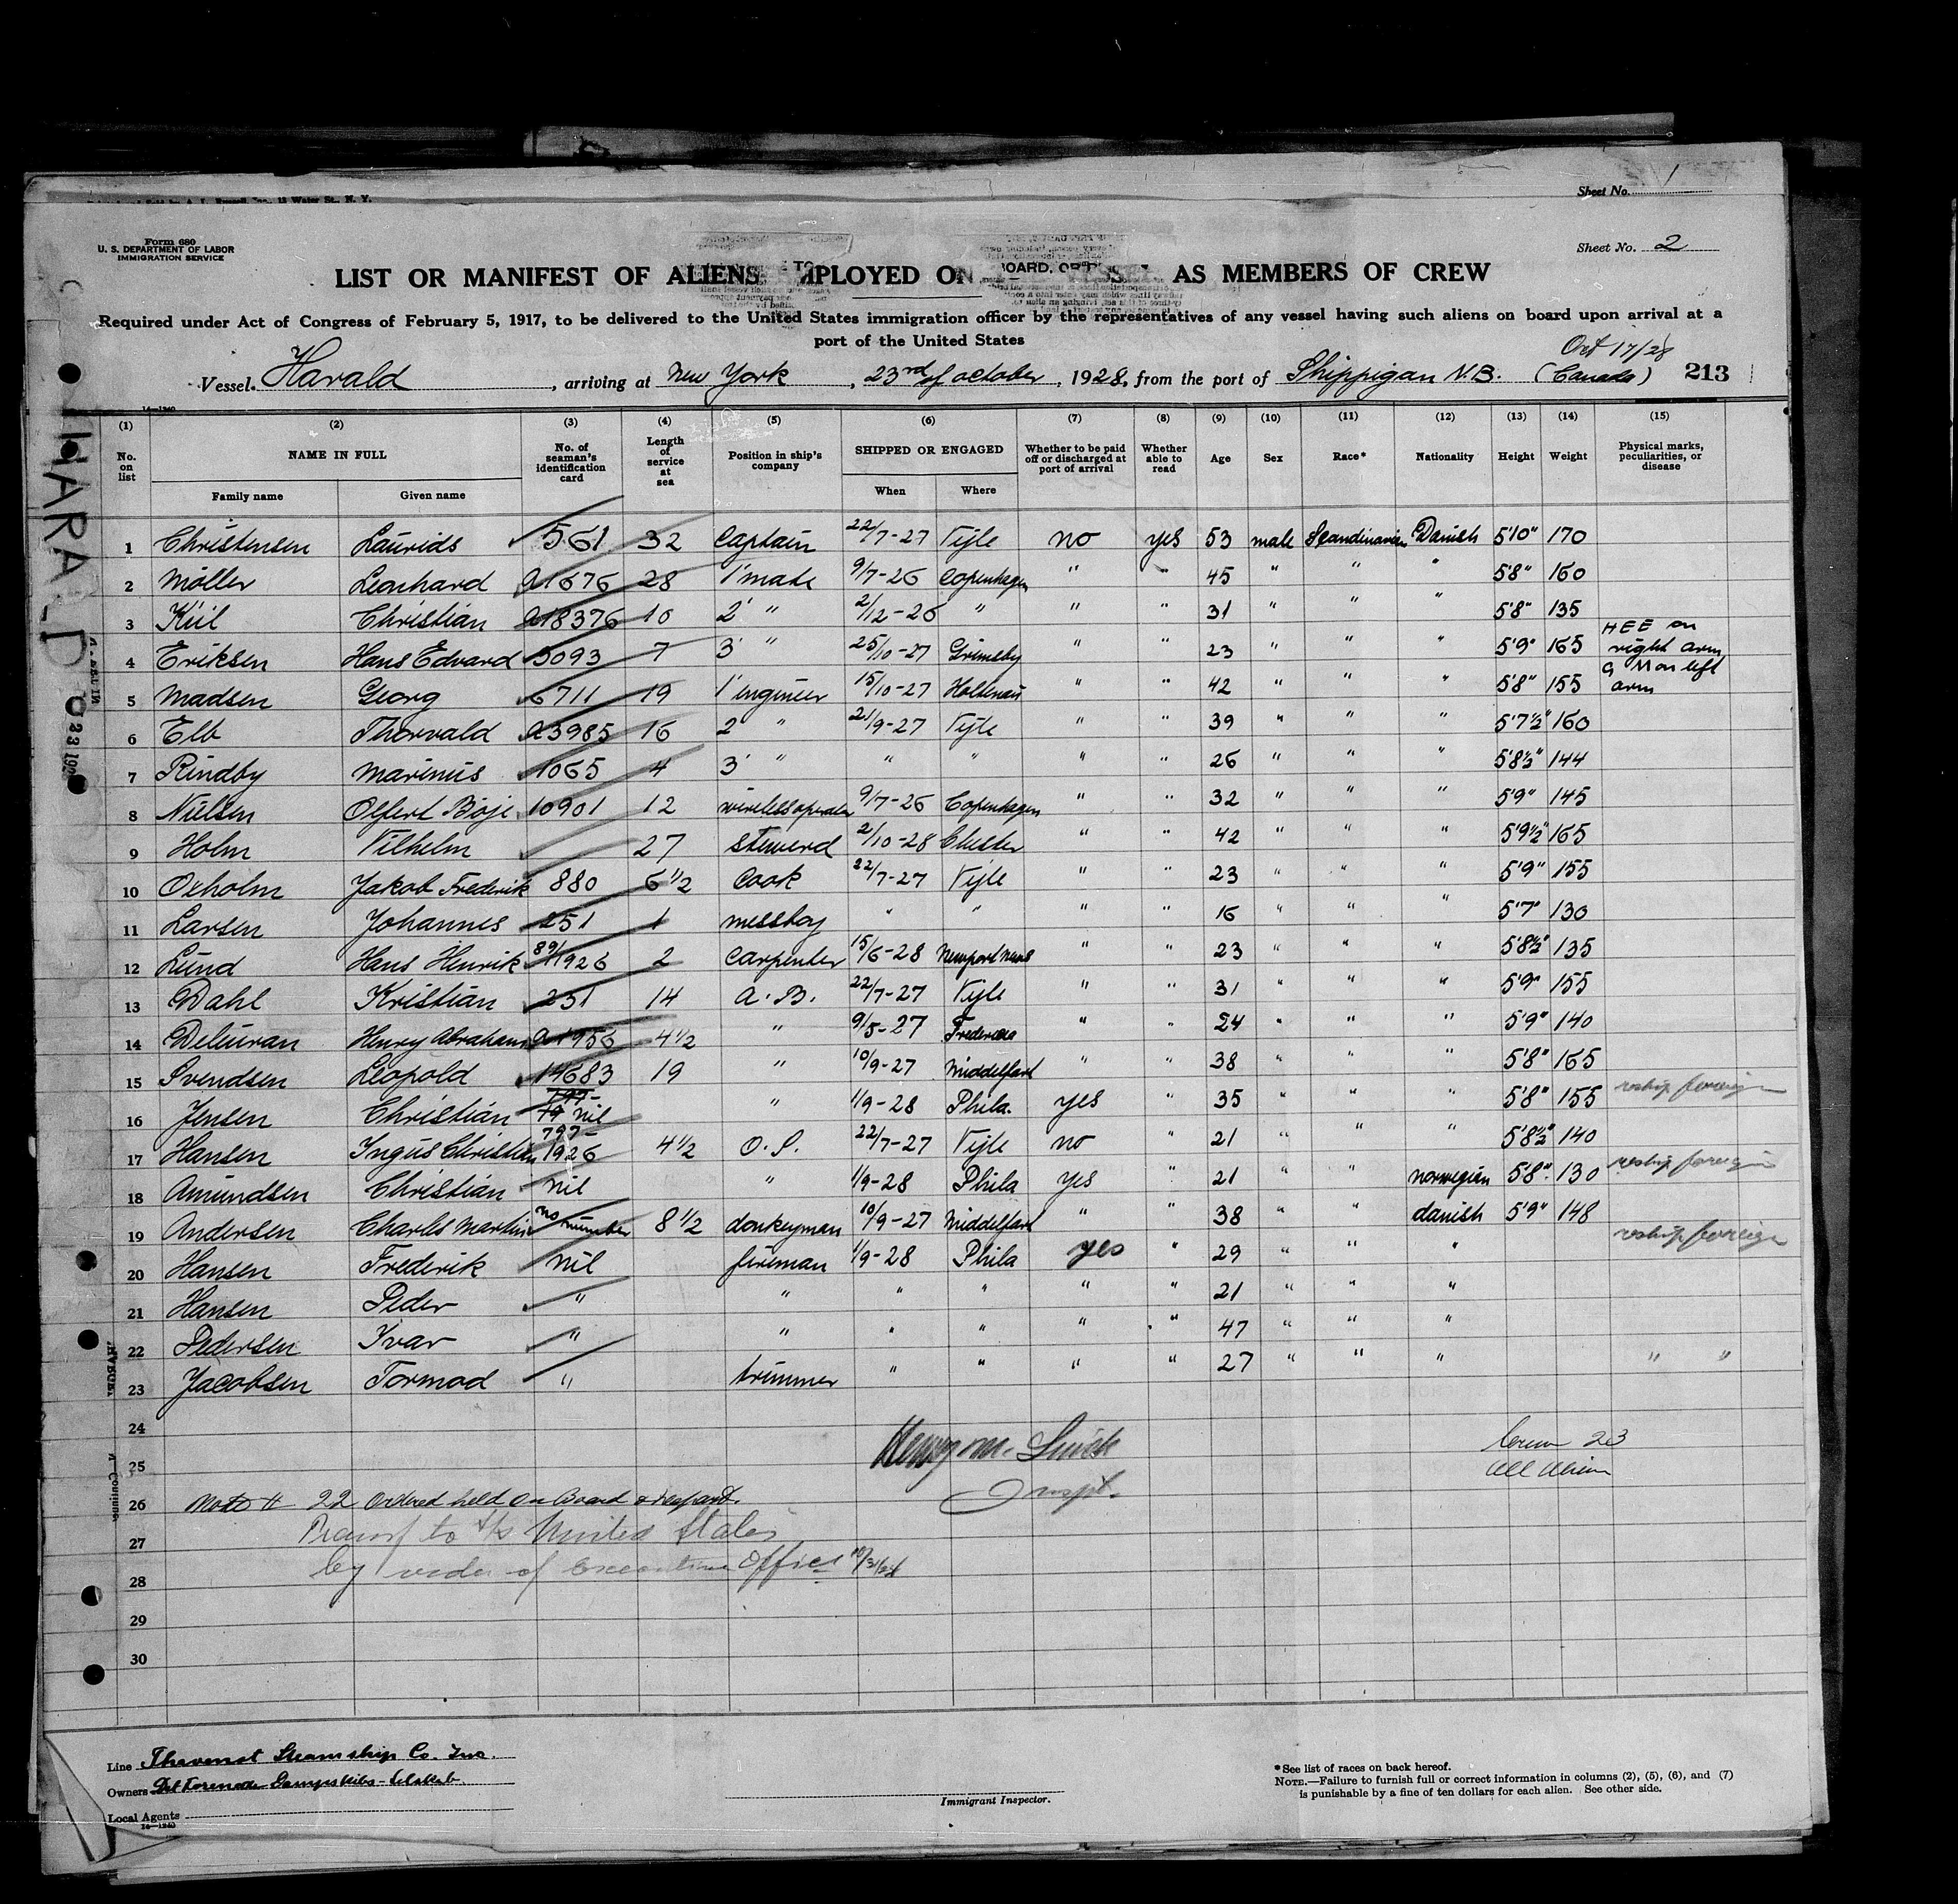 Sheet No. 1
Form 680
U. S. DEPARTMENT OF LABOR
IMMIGRATION SERVICE
Sheet No. 2
LIST OR MANIFEST OF ALIENS EMPLOYED ON AS MEMBERS OF CREW
Required under Act of Congress of February 5, 1917, to be delivered to the United States immigration officer by the representatives of any vessel having such aliens on board upon arrival at a
port of the United States
Oct 17/28
Vessel Harald, arriving at New York, 23rd of october, 1928, from the port of Shippigan N.B. (Canada) 213
(1) (2) (3) (4) (5) (6) (7) (8) (9) (10) (11) (12) (13) (14) (15)
No. on list NAME IN FULL No. of seaman's identification card Length of service at sea Position in ship's company SHIPPED OR ENGAGED Whether to be paid off or discharged at port of arrival Whether able to read Age Sex Race* Nationality Height Weight Physical marks, peculiarities, or disease
Family name Given name When Where
1 Christensen Laurids 561 32 Captain 22/7-27 Vejle no yes 53 male Scandinavian Danish 5'10" 170
2 Möller Leonhard a1676 28 1' mate 9/7-26 Copenhagen " " 45 " " " 5'8" 160
3 Kiil Christian a18376 10 2' " 2/12-26 " " " 31 " " " 5'8" 135
4 Eriksen Hans Edvard 5093 7 3' " 25/10-27 Grimsby " " 23 " " " 5'9" 165 HEE on right arm
5 Madsen Georg 6711 19 1' engineer 15/10-27 Holtenau " " 42 " " " 5'8" 155 G M on left arm
6 Elb Thorvald a3985 16 2' " 21/9-27 Vejle " " 39 " " " 5'7½" 160
7 Rindby Marinus 1065 4 3' " " " " " 26 " " " 5'8½" 144
8 Nielsen Olfert Böje 10901 12 wireless operator 9/7-26 Copenhagen " " 32 " " " 5'9" 145
9 Holm Vilhelm 27 steward 2/10-28 Chester " " 42 " " " 5'9½" 165
10 Oxholm Jakob Frederik 880 6½ Cook 22/7-27 Vejle " " 23 " " " 5'9" 155
11 Larsen Johannes 251 1 messboy " " " " 16 " " " 5'7" 130
12 Lund Hans Henrik 89/1926 2 Carpenter 15/6-28 Newport News " " 23 " " " 5'8½" 135
13 Dahl Kristian 231 14 A.B. 22/7-27 Vejle " " 31 " " " 5'9" 155
14 Deleuran Henry Abraham a1956 4½ " 9/5-27 Fredericia " " 24 " " " 5'9" 140
15 Svendsen Leopold 14683 19 " 10/9-27 Middelfart " " 38 " " " 5'8" 165
16 Jensen Christian nil " 1/9-28 Phila. yes " 35 " " " 5'8" 155 reship foreign
17 Hansen Ingus Christian 797-1926 4½ O.S. 22/7-27 Vejle no " 21 " " " 5'8½" 140
18 Amundsen Christian nil " 1/9-28 Phila yes " 21 " " norwegian 5'8" 130 reship foreign
19 Andersen Charles Martin no number 8½ donkeyman 10/9-27 Middelfart " " 38 " " danish 5'9" 148
20 Hansen Frederik nil fireman 1/9-28 Phila yes " 29 " " " reship foreign
21 Hansen Peder " " " " " " 21 " " "
22 Pedersen Ivar " " " " " " 47 " " "
23 Jacobsen Tormod " trimmer " " " " 27 " " " " "
24
25
26
27
28
29
30
Henry M. Smith
Inspt.
Crew 23
All Alien
Note # 22 Ordered held on Board & deport.
Transf to s/s United States
by order of Executive Office 10/31/28
Line Thevenot Steamship Co. Inc.
Owners Det Forenede Dampskibs-Selskab
Local Agents
Immigrant Inspector.
*See list of races on back hereof.
NOTE.—Failure to furnish full or correct information in columns (2), (5), (6), and (7)
is punishable by a fine of ten dollars for each alien. See other side.
HARALD